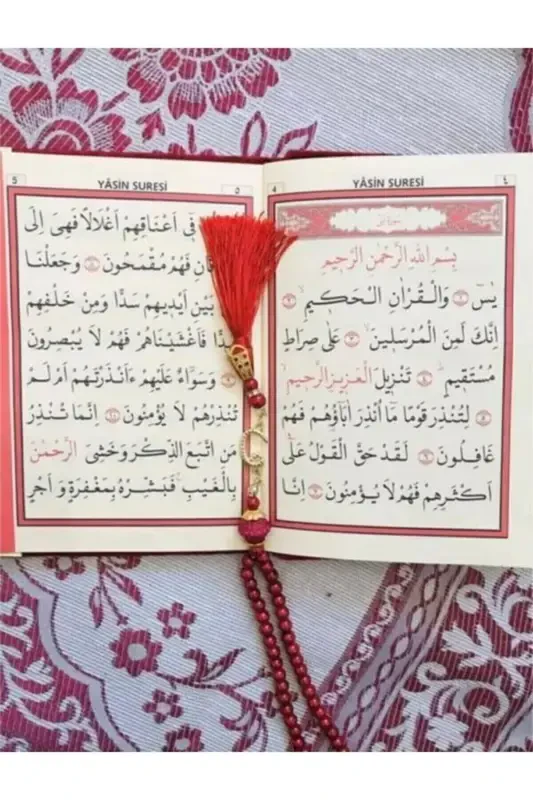 4 YÂSİN SURESİ ٤
بِسْمِ اللّٰهِ الرَّحْمٰنِ الرَّحِيمِ
يٰسٓ ۚ ﴿١﴾ وَالْقُرْاٰنِ الْحَكِيمِۙ ﴿٢﴾
اِنَّكَ لَمِنَ الْمُرْسَلِينَۙ ﴿٣﴾ عَلٰى صِرَاطٍ
مُسْتَقِيمٍۜ ﴿٤﴾ تَنْزِيلَ الْعَزِيزِ الرَّحِيمِۙ
﴿٥﴾ لِتُنْذِرَ قَوْمًا مَٓا اُنْذِرَ اٰبَٓاؤُهُمْ فَهُمْ
غَافِلُونَ ﴿٦﴾ لَقَدْ حَقَّ الْقَوْلُ عَلٰٓى
اَكْثَرِهِمْ فَهُمْ لَا يُؤْمِنُونَ ﴿٧﴾ اِنَّا
5 YÂSİN SURESİ ٥
فِٓى اَعْنَاقِهِمْ اَغْلَالًا فَهِىَ اِلَى
فَهُمْ مُقْمَحُونَ ﴿٨﴾ وَجَعَلْنَا
بَيْنِ اَيْدِيهِمْ سَدًّا وَمِنْ خَلْفِهِمْ
فَاَغْشَيْنَاهُمْ فَهُمْ لَا يُبْصِرُونَ
﴿٩﴾ وَسَوَٓاءٌ عَلَيْهِمْ ءَاَنْذَرْتَهُمْ اَمْ لَمْ
تُنْذِرْهُمْ لَا يُؤْمِنُونَ ﴿١٠﴾ اِنَّمَا تُنْذِرُ
مَنِ اتَّبَعَ الذِّكْرَ وَخَشِىَ الرَّحْمٰنَ
بِالْغَيْبِۚ فَبَشِّرْهُ بِمَغْفِرَةٍ وَ اَجْرٍ